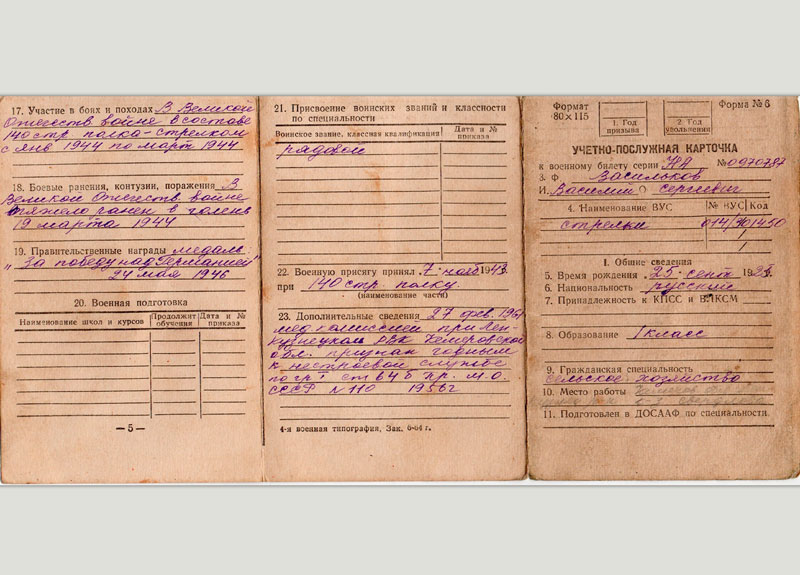 17. Участие в боях и походах В Великой
Отечеств войне в составе
140 стр. полка - стрелком
с янв 1944 по март 1944
18. Боевые ранения, контузии, поражения В
Великой Отечеств. войне
тяжело ранен в голень
19 марта 1944
19. Правительственные награды медаль
"За победу над Германией"
24 мая 1946
20. Военная подготовка
Наименование школ и курсов Продолжит обучения Дата и № приказа
— 5 —
21. Присвоение воинских званий и классности
по специальности
Воинское звание, классная квалификация Дата и № приказа
рядовой
22. Военную присягу принял 7 нояб 1943 г.
при 140 стр. полку
(наименование части)
23. Дополнительные сведения 27 фев. 1961
мед комиссией при Лен.
Кузнецком РВК Кемеровской
обл. признан годным
к нестроевой службе
по гр I ст 64 б пр. м. о.
СССР N 110 1956 г
4-я военная типография, Зак. 6-64 г.
Формат
80×115
1. Год
призыва
2. Год
увольнения
Форма № 6
УЧЕТНО-ПОСЛУЖНАЯ КАРТОЧКА
к военному билету серии № 0970787
3. Ф Васильков
И. Василий О Сергеевич
4. Наименование ВУС № ВУС Код
стрелки
I. Общие сведения
5. Время рождения 25 сент
6. Национальность русский
7. Принадлежность к КПСС и ВЛКСМ
8. Образование 1 класс
9. Гражданская специальность
сельское хозяйство
10. Место работы
11. Подготовлен в ДОСААФ по специальности.